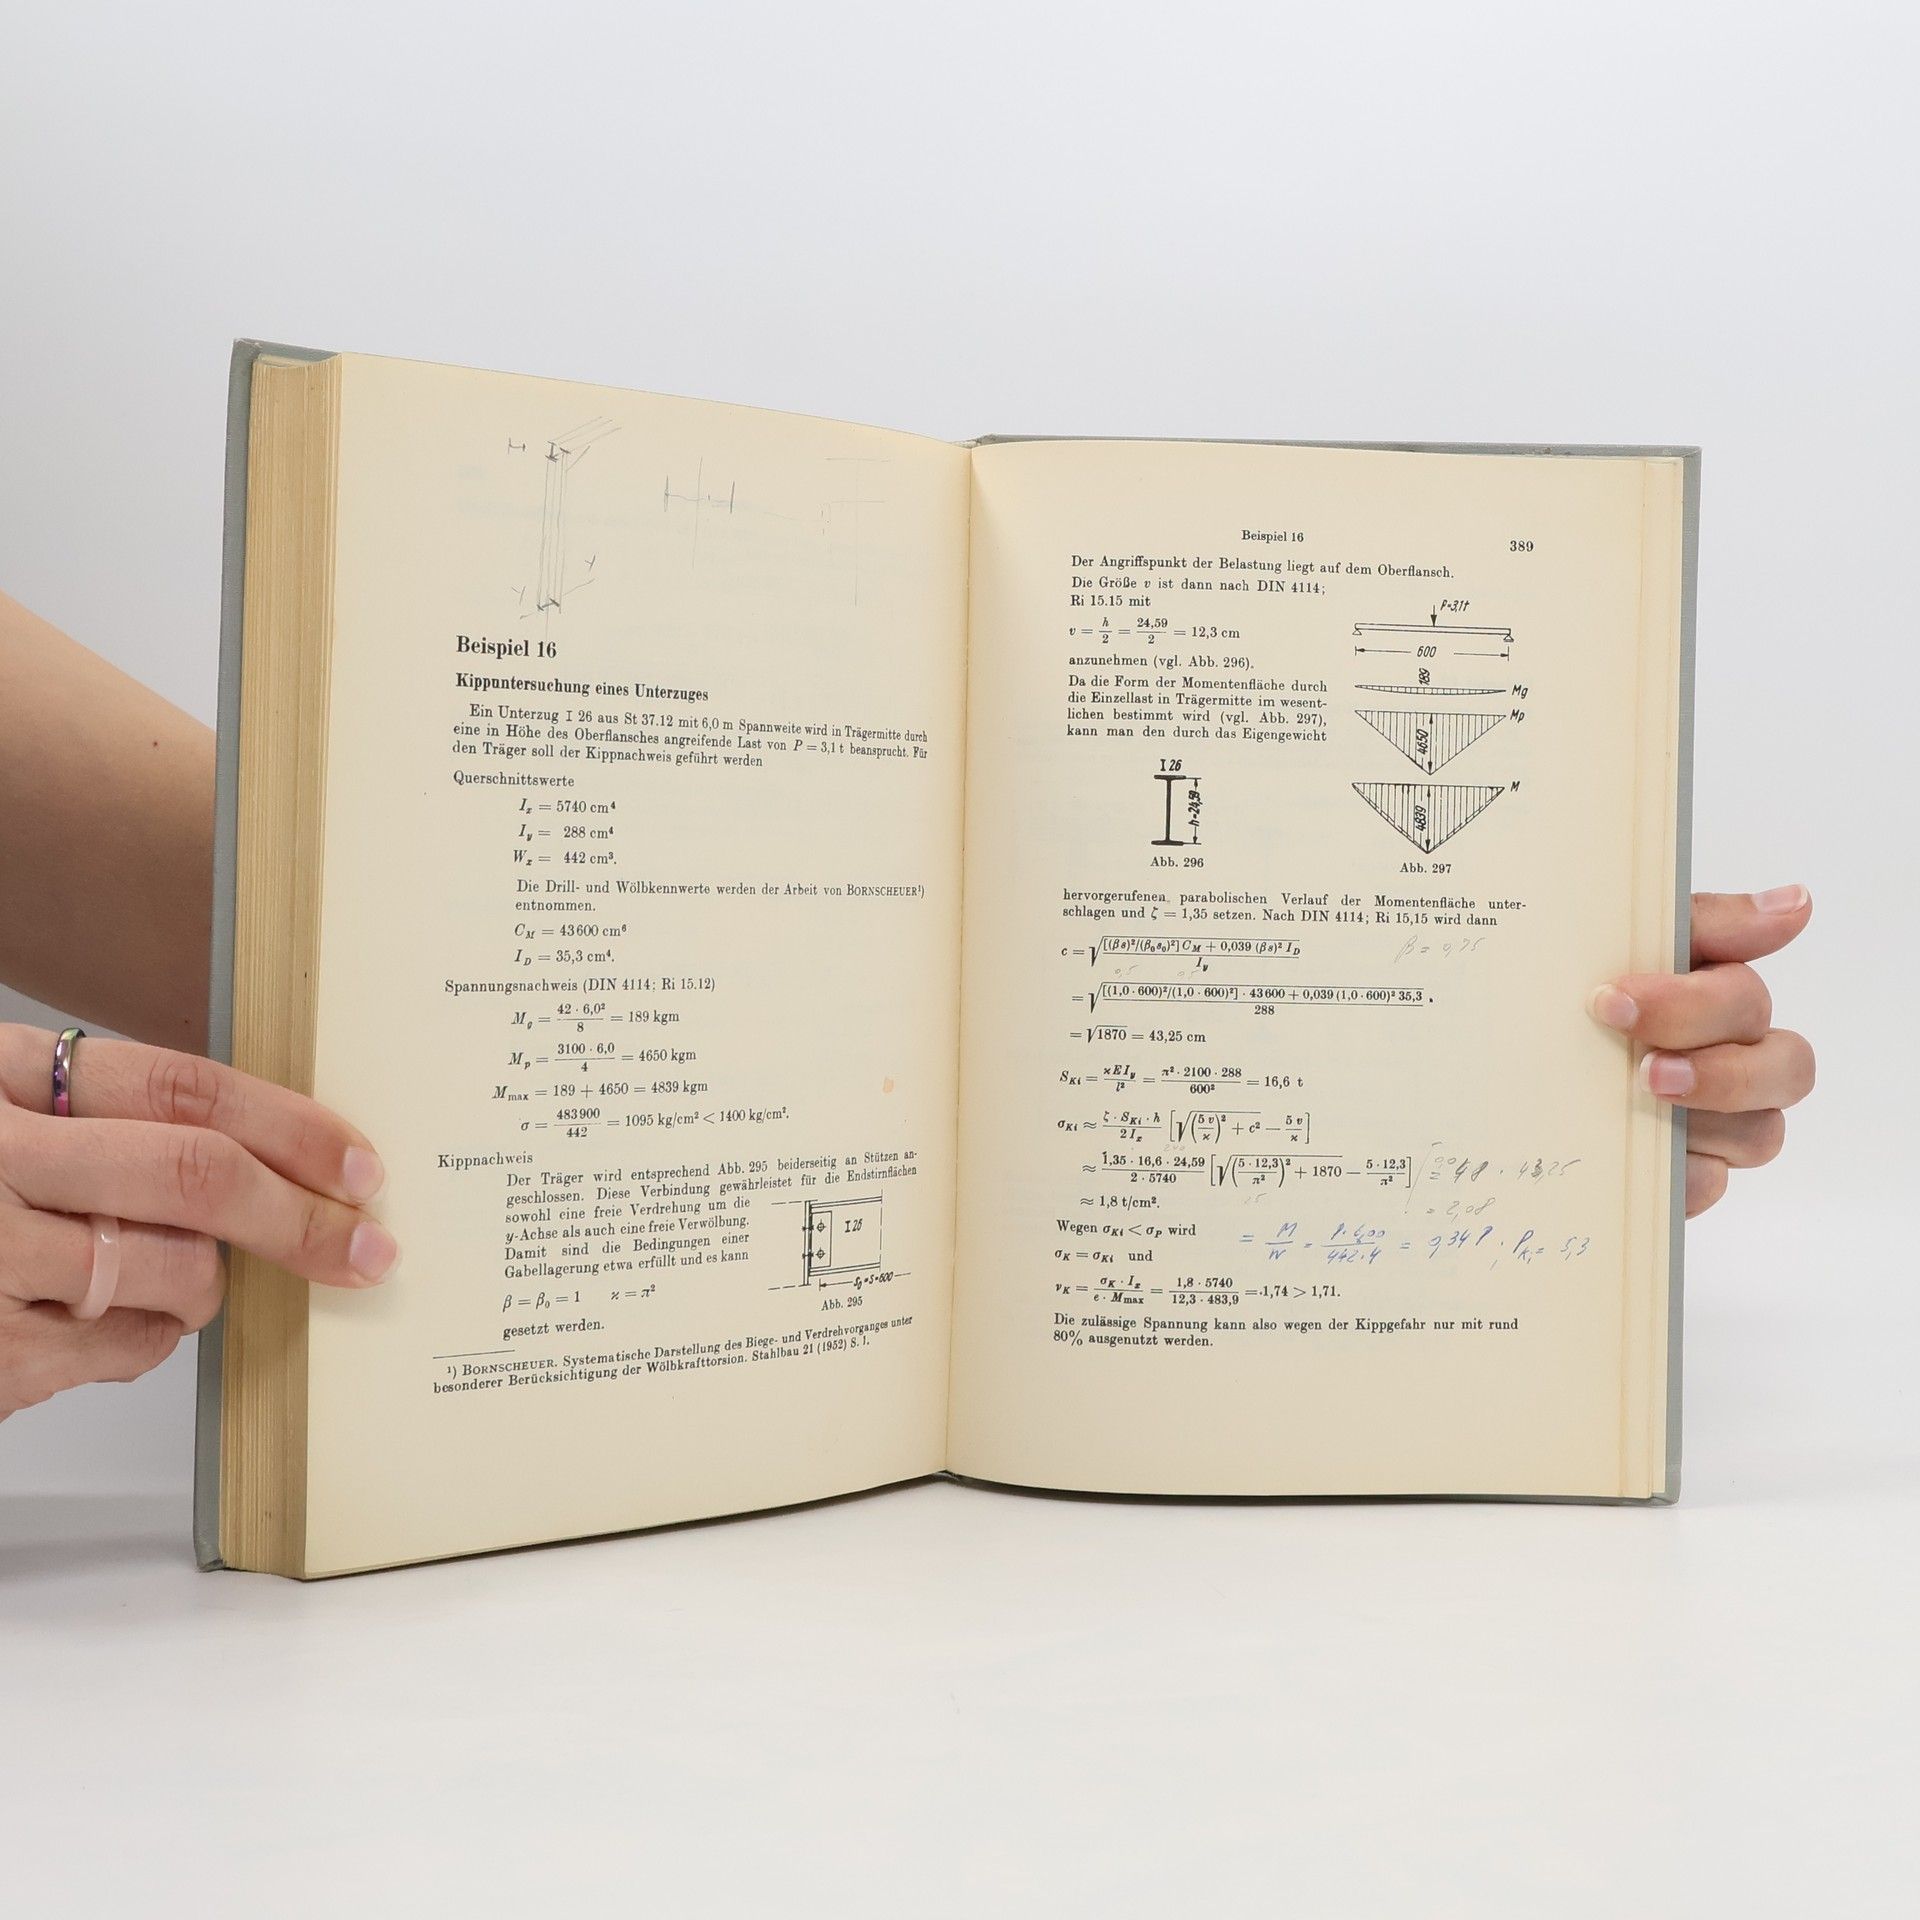 Beispiel 16
Kippuntersuchung eines Unterzuges
Ein Unterzug I 26 aus St 37.12 mit 6,0 m Spannweite wird in Trägermitte durch
eine in Höhe des Oberflansches angreifende Last von P = 3,1 t beansprucht. Für
den Träger soll der Kippnachweis geführt werden
Querschnittswerte
I_x = 5740 cm⁴
I_y = 288 cm⁴
W_x = 442 cm³.
Die Drill- und Wölbkennwerte werden der Arbeit von BORNSCHEUER¹)
entnommen.
C_M = 43600 cm⁶
I_D = 35,3 cm⁴.
Spannungsnachweis (DIN 4114; Ri 15.12)
M_g = 42 · 6,0² / 8 = 189 kgm
M_p = 3100 · 6,0 / 4 = 4650 kgm
M_max = 189 + 4650 = 4839 kgm
σ = 483900 / 442 = 1095 kg/cm² < 1400 kg/cm².
Kippnachweis
Der Träger wird entsprechend Abb. 295 beiderseitig an Stützen an-
geschlossen. Diese Verbindung gewährleistet für die Endstirnflächen
sowohl eine freie Verdrehung um die
y-Achse als auch eine freie Verwölbung.
Damit sind die Bedingungen einer
Gabellagerung etwa erfüllt und es kann
β = β₀ = 1 ϰ = π²
gesetzt werden.
I 26
s₀=s=600
Abb. 295
¹) BORNSCHEUER. Systematische Darstellung des Biege- und Verdrehvorganges unter
besonderer Berücksichtigung der Wölbkrafttorsion. Stahlbau 21 (1952) S. 1.
Beispiel 16
389
Der Angriffspunkt der Belastung liegt auf dem Oberflansch.
Die Größe v ist dann nach DIN 4114;
Ri 15.15 mit
v = h/2 = 24,59/2 = 12,3 cm
anzunehmen (vgl. Abb. 296).
Da die Form der Momentenfläche durch
die Einzellast in Trägermitte im wesent-
lichen bestimmt wird (vgl. Abb. 297),
kann man den durch das Eigengewicht
P=3,1t
600
189
Mg
Mp
4650
M
4839
I 26
h=24,59
Abb. 296
Abb. 297
hervorgerufenen parabolischen Verlauf der Momentenfläche unter-
schlagen und ζ = 1,35 setzen. Nach DIN 4114; Ri 15,15 wird dann
c = √([(βs)²/(β₀s₀)²] C_M + 0,039 (βs)² I_D / I_y)
β = 0,75
0,5 0,5
= √([(1,0 · 600)²/(1,0 · 600)²] · 43600 + 0,039 (1,0 · 600)² 35,3 / 288) .
= √1870 = 43,25 cm
S_Ki = ϰEI_y / l² = π² · 2100 · 288 / 600² = 16,6 t
σ_Ki ≈ ζ · S_Ki · h / 2 I_x [√((5 v/ϰ)² + c²) − 5 v/ϰ]
≈ 1,35 · 16,6 · 24,59 / 2 · 5740 [√((5 · 12,3/π²)² + 1870) − 5 · 12,3/π²]
· 43,25
≈ 1,8 t/cm².
= 2,08
Wegen σ_Ki < σ_P wird
= M/W = P · 6,00 / 442 · 4 = 0,34 P , P_Ki = 5,3
σ_K = σ_Ki und
ν_K = σ_K · I_x / e · M_max = 1,8 · 5740 / 12,3 · 483,9 = 1,74 > 1,71.
Die zulässige Spannung kann also wegen der Kippgefahr nur mit rund
80% ausgenutzt werden.